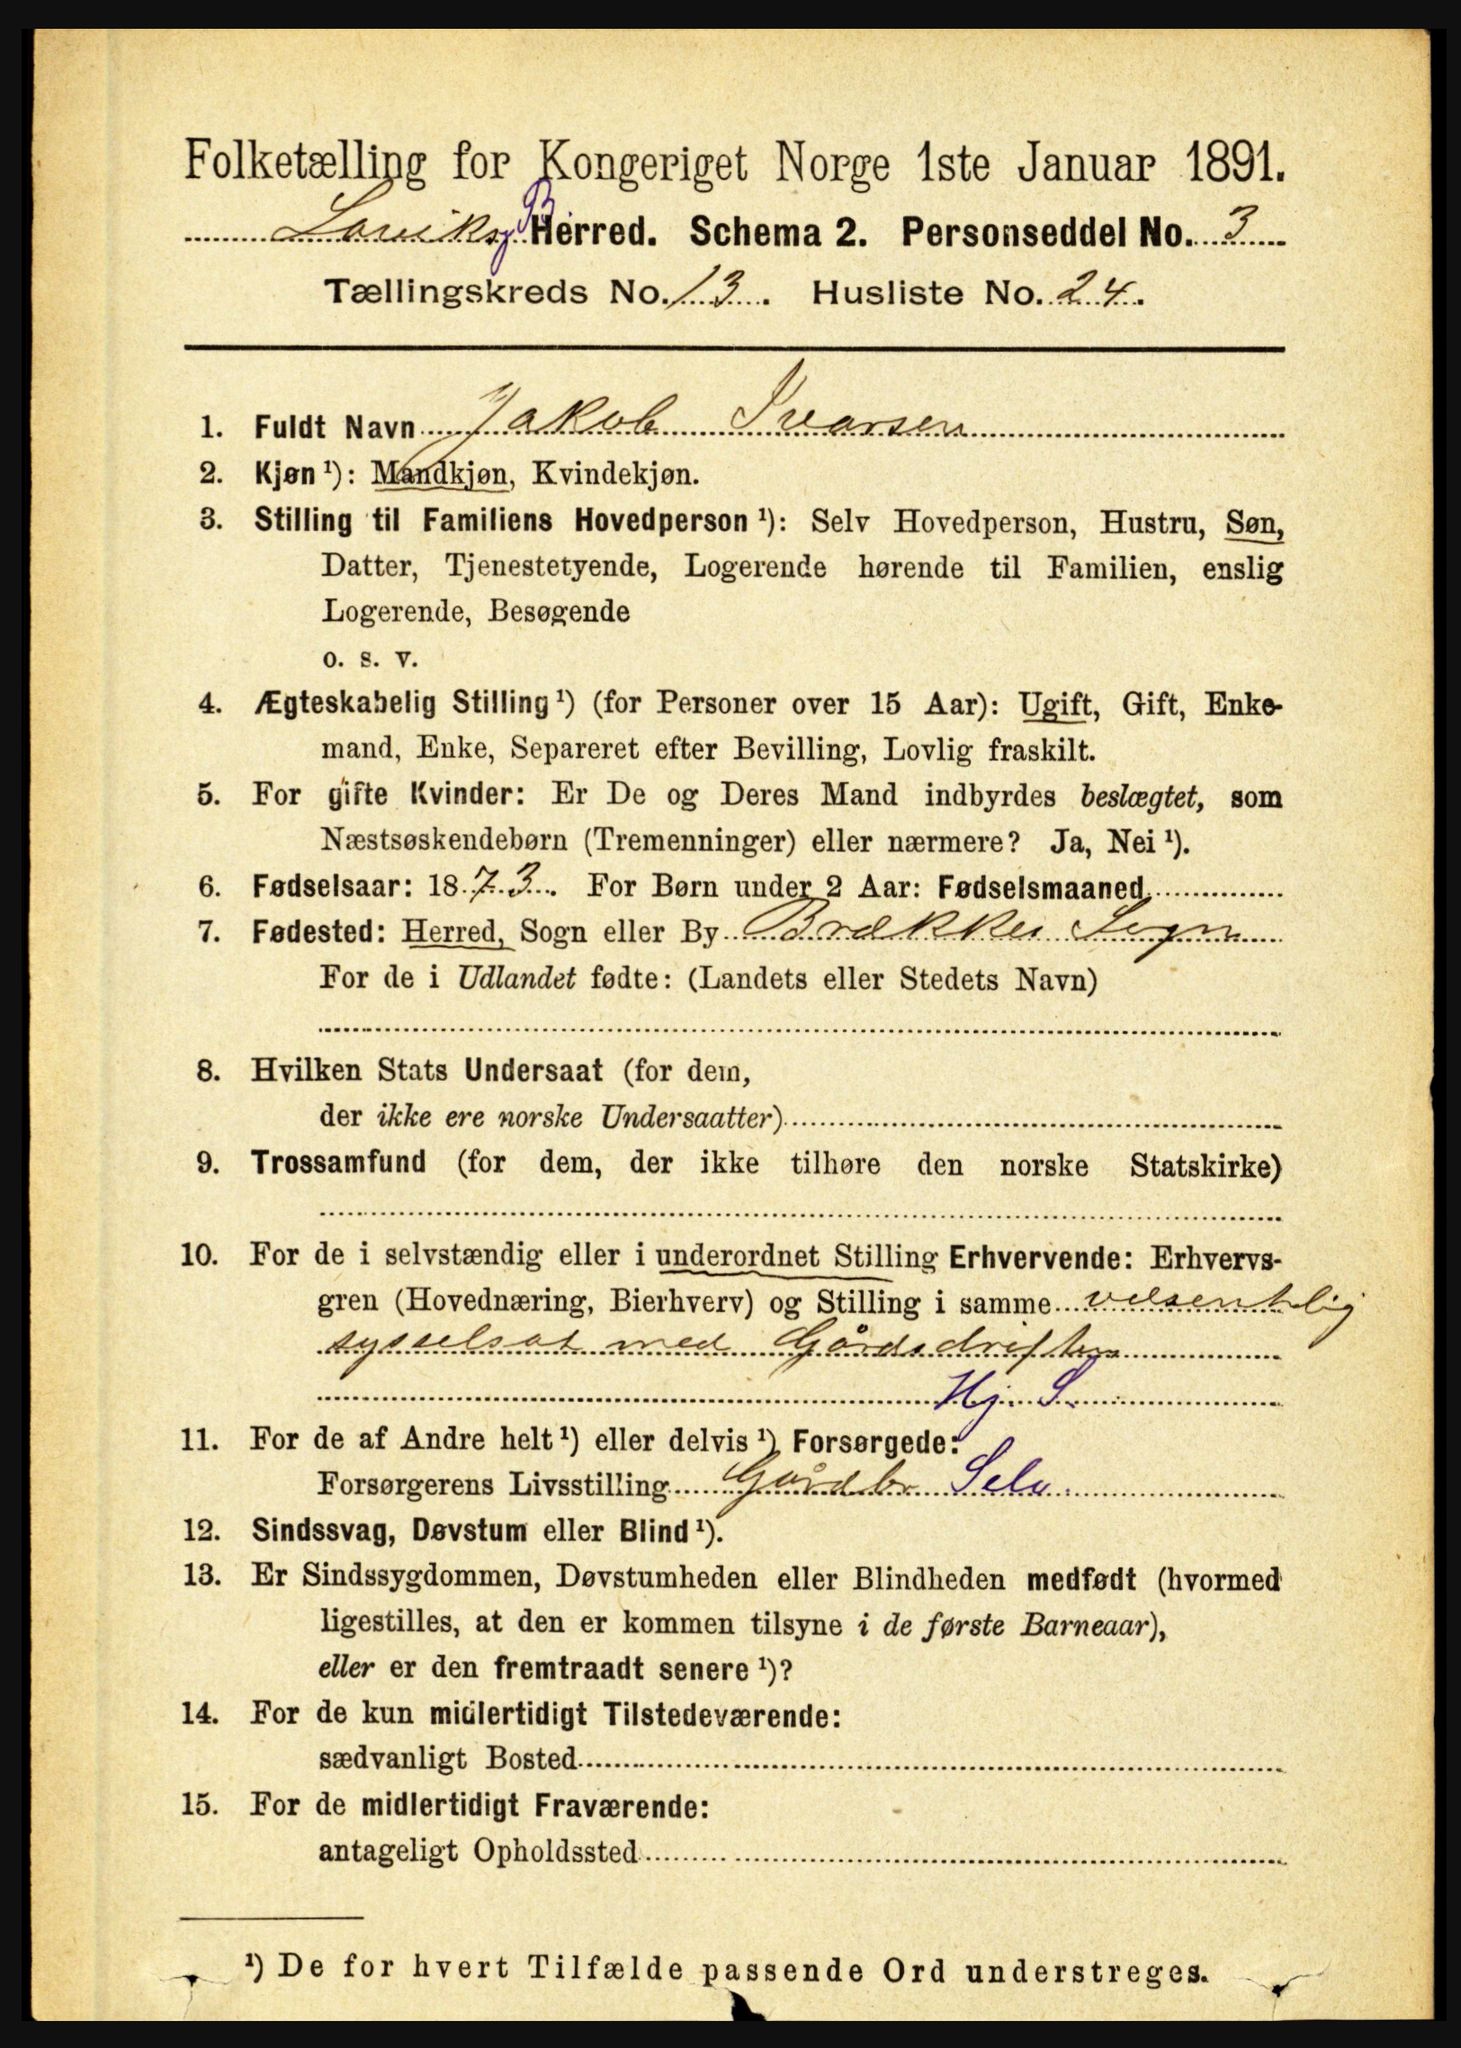 Folketælling for Kongeriget Norge 1ste Januar 1891.
Laviks og B. Herred. Schema 2. Personseddel No. 3
Tællingskreds No. 13. Husliste No. 24.
1. Fuldt Navn Jakob Ivarsen
2. Kjøn ¹): Mandkjøn, Kvindekjøn.
3. Stilling til Familiens Hovedperson ¹): Selv Hovedperson, Hustru, Søn,
Datter, Tjenestetyende, Logerende hørende til Familien, enslig
Logerende, Besøgende
o. s. v.
4. Ægteskabelig Stilling ¹) (for Personer over 15 Aar): Ugift, Gift, Enke-
mand, Enke, Separeret efter Bevilling, Lovlig fraskilt.
5. For gifte Kvinder: Er De og Deres Mand indbyrdes beslægtet, som
Næstsøskendebørn (Tremenninger) eller nærmere? Ja, Nei ¹).
6. Fødselsaar: 1873. For Børn under 2 Aar: Fødselsmaaned
7. Fødested: Herred, Sogn eller By Brækkes Sogn
For de i Udlandet fødte: (Landets eller Stedets Navn)
8. Hvilken Stats Undersaat (for dem,
der ikke ere norske Undersaatter)
9. Trossamfund (for dem, der ikke tilhøre den norske Statskirke)
10. For de i selvstændig eller i underordnet Stilling Erhvervende: Erhvervs-
gren (Hovednæring, Bierhverv) og Stilling i samme væsentlig
sysselsat med Gårdsdriften
Hj. S.
11. For de af Andre helt ¹) eller delvis ¹) Forsørgede:
Forsørgerens Livsstilling Gårdbr Selv.
12. Sindssvag, Døvstum eller Blind ¹).
13. Er Sindssygdommen, Døvstumheden eller Blindheden medfødt (hvormed
ligestilles, at den er kommen tilsyne i de første Barneaar),
eller er den fremtraadt senere ¹)?
14. For de kun midlertidigt Tilstedeværende:
sædvanligt Bosted
15. For de midlertidigt Fraværende:
antageligt Opholdssted
¹) De for hvert Tilfælde passende Ord understreges.